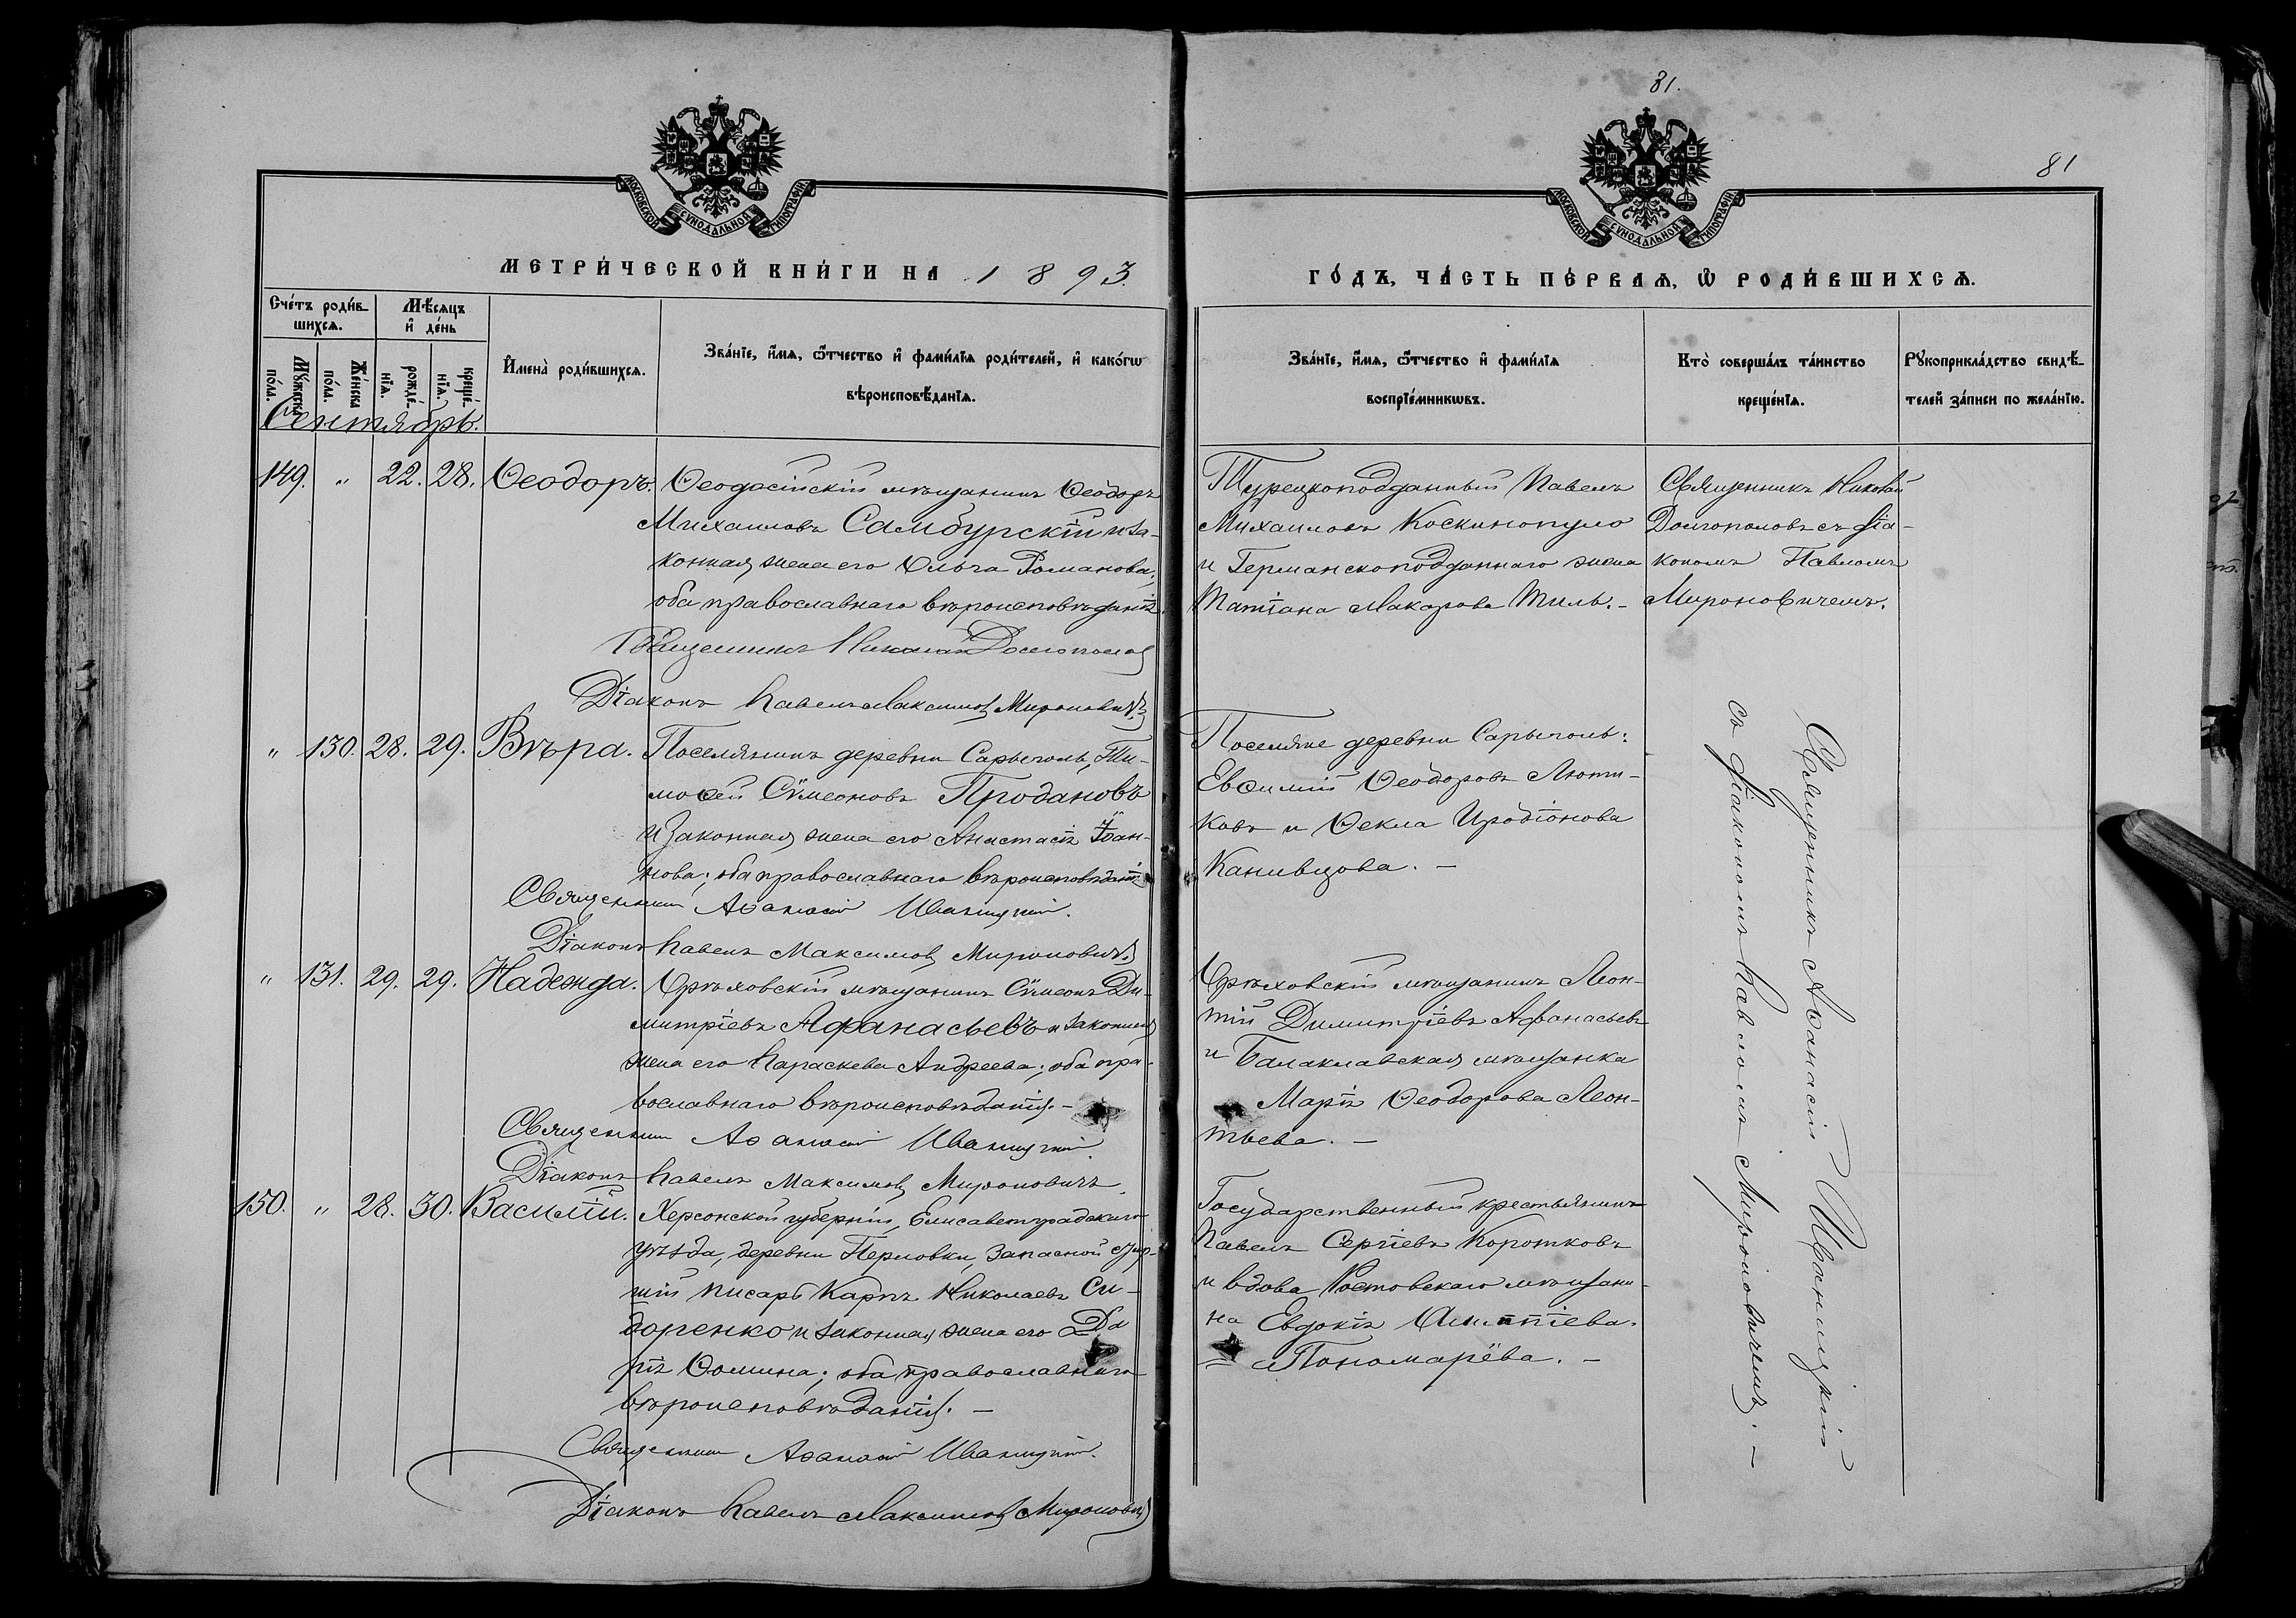 81.
81
МОСКОВСКОЙ СУНОДАЛЬНОЙ ТИПОГРАФІИ
МОСКОВСКОЙ СУНОДАЛЬНОЙ ТИПОГРАФІИ
МЕТРИ́ЧЕСКОЙ КНИ́ГИ НА 1893.
ГО́ДЪ, ЧА́СТЬ ПЕ́РВАѦ, Ѡ҆ РОДИ́ВШИХСѦ.
Сче́тъ роди́в-
шихсѧ.
Мѣ́сѧцъ
и҆ де́нь
Мꙋ́жеска
по́ла.
Же́нска
по́ла.
рожде́-
нїѧ.
креще́-
нїѧ.
И҆мена̀ роди́вшихсѧ.
Зва́нїе, и҆́мѧ, ѻ҆́тчество и҆ фами́лїѧ роди́телей, и҆ како́гѡ
вѣроисповѣ́данїѧ.
Зва́нїе, и҆́мѧ, ѻ҆́тчество и҆ фами́лїѧ
воспрїе́мникѡвъ.
Кто̀ соверша́лъ та́инство
креще́нїѧ.
Рꙋкоприкла́дство свидѣ́-
телей за́писи по жела́нїю.
Сентябрь.
149. " 22. 28. Ѳеодоръ. Ѳеодосійскій мѣщанинъ Ѳеодоръ
Михаиловъ Самбурскій и за-
конная жена его Ольга Романова;
оба православнаго вѣроисповѣданія.
Священникъ Николай Долгополов
Діаконъ Павелъ Максимов Миронович
Турецкоподданный Павелъ
Михаиловъ Коскинопуло
и Германскоподданнаго жена
Татіана Макарова Тиль. -
Священникъ Николай
Долгополовъ съ діа-
кономъ Павломъ
Мироновичемъ.
" 130. 28. 29. Вѣра. Поселянинъ деревни Сарыголь, Ти-
моѳей Сѵмеоновъ Продановъ
и законная жена его Анастасія Іоан-
нова; оба православнаго вѣроисповѣданія
Священник Аѳанасій Иваницкій.
Діаконъ Павелъ Максимов Миронович
Поселяне деревни Сарыголь:
Евѳимій Ѳеодоровъ Люти-
ковъ и Ѳекла Иродіонова
Канивцова. -
" 131. 29. 29. Надежда. Орѣховскій мѣщанинъ Сѵмеонъ Ди-
митріевъ Афанасьевъ и законная
жена его Параскева Андреева; оба пра-
вославнаго вѣроисповѣданія. -
Священник Аѳанасій Иваницкій.
Діаконъ Павелъ Максимов Мироновичъ
Орѣховскій мѣщанинъ Леон-
тій Димитріевъ Афанасьевъ
и Балаклавская мѣщанка
Марія Ѳеодорова Леон-
тьева. -
150. " 28. 30. Василій. Херсонской губерніи, Елисаветградскаго
уѣзда, деревни Перловки, запасной стар-
шій писарь Карпъ Николаевъ Си-
доренко и законная жена его Да
рія Ѳомина; оба православнаго
вѣроисповѣданія. -
Священник Аѳанасій Иваницкій.
Діаконъ Павелъ Максимов Миронович
Государственный крестьянинъ
Павелъ Сергіевъ Коротковъ
и вдова Ростовскаго мѣщани-
на Евдокія
= Пономарёва. -
Священникъ Аѳанасій Иваницкій
съ діакономъ Павломъ Мироновичемъ. -